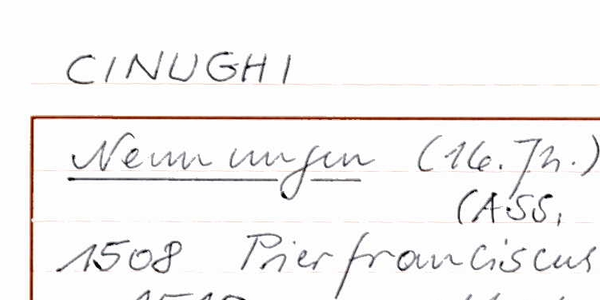 CINUGHI
Nennungen (16. Jh.)
(ASS,
1508 Pierfranciscus